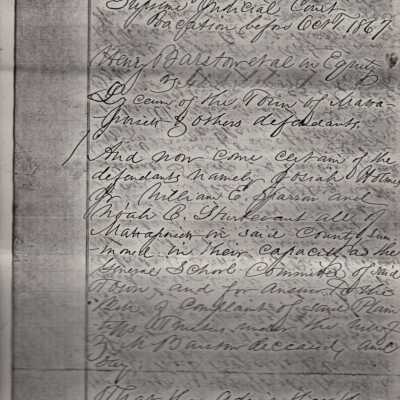 Supreme Judicial Court
Vacation before Oct T. 1867
Henry Barstow et al in Equity
vs.
of the Town of Matta-
poisett & others defendants.
And now come certain of the
defendants namely Josiah Holmes
Jr. William E. Sparrow and
Noah C. Sturtevant all of
Mattapoisett in said County, sum-
moned in their capacity as the
General School Committee of said
Town and for answer to the
Bill of Complaint of said Plain
tiffs under the
Barstow deceased, and
say: